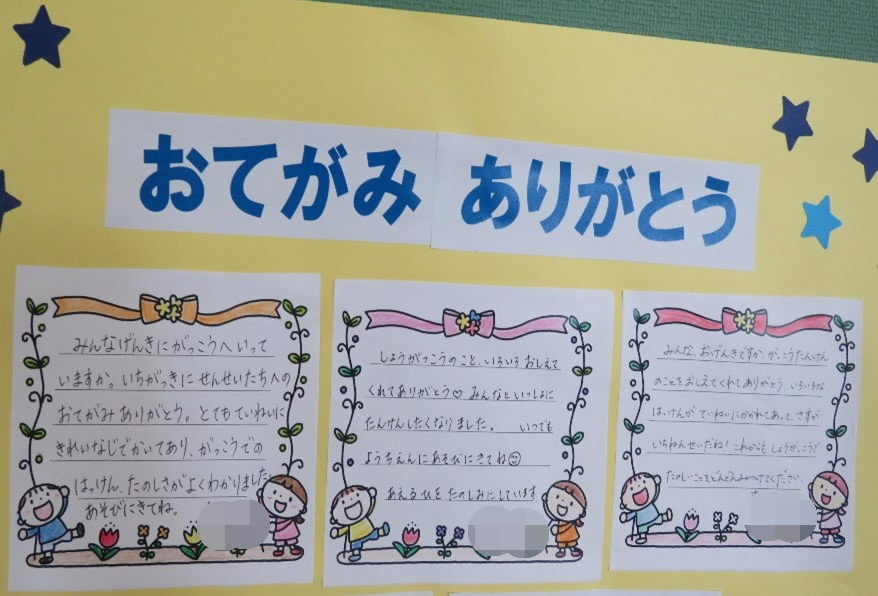 おてがみ ありがとう
みんなげんきにがっこうへいって
いますか。いちがっきにせんせいたちへの
おてがみありがとう。とてもていねいに
きれいなじでかいてあり、がっこうでの
はっけん、たのしさがよくわかりました。
あそびにきてね。
しょうがっこうのこと、いろいろおしえて
くれてありがとう♡みんなといっしょに
たんけんしたくなりました。いつでも
ようちえんにあそびにきてね☺
あえるひをたのしみにしています
みんな、おげんきですか。がっこうたんけん
のことをおしえてくれてありがとう。いろいろな
はっけんがていねいにかかれてあって、さすが
いちねんせいだね！これからもしょうがっこうで
たのしいことをどんどんみつけてください。